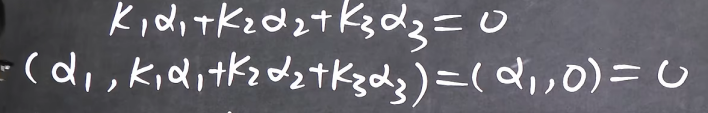 k₁α₁+k₂α₂+k₃α₃=0
(α₁,k₁α₁+k₂α₂+k₃α₃)=(α₁,0)=0